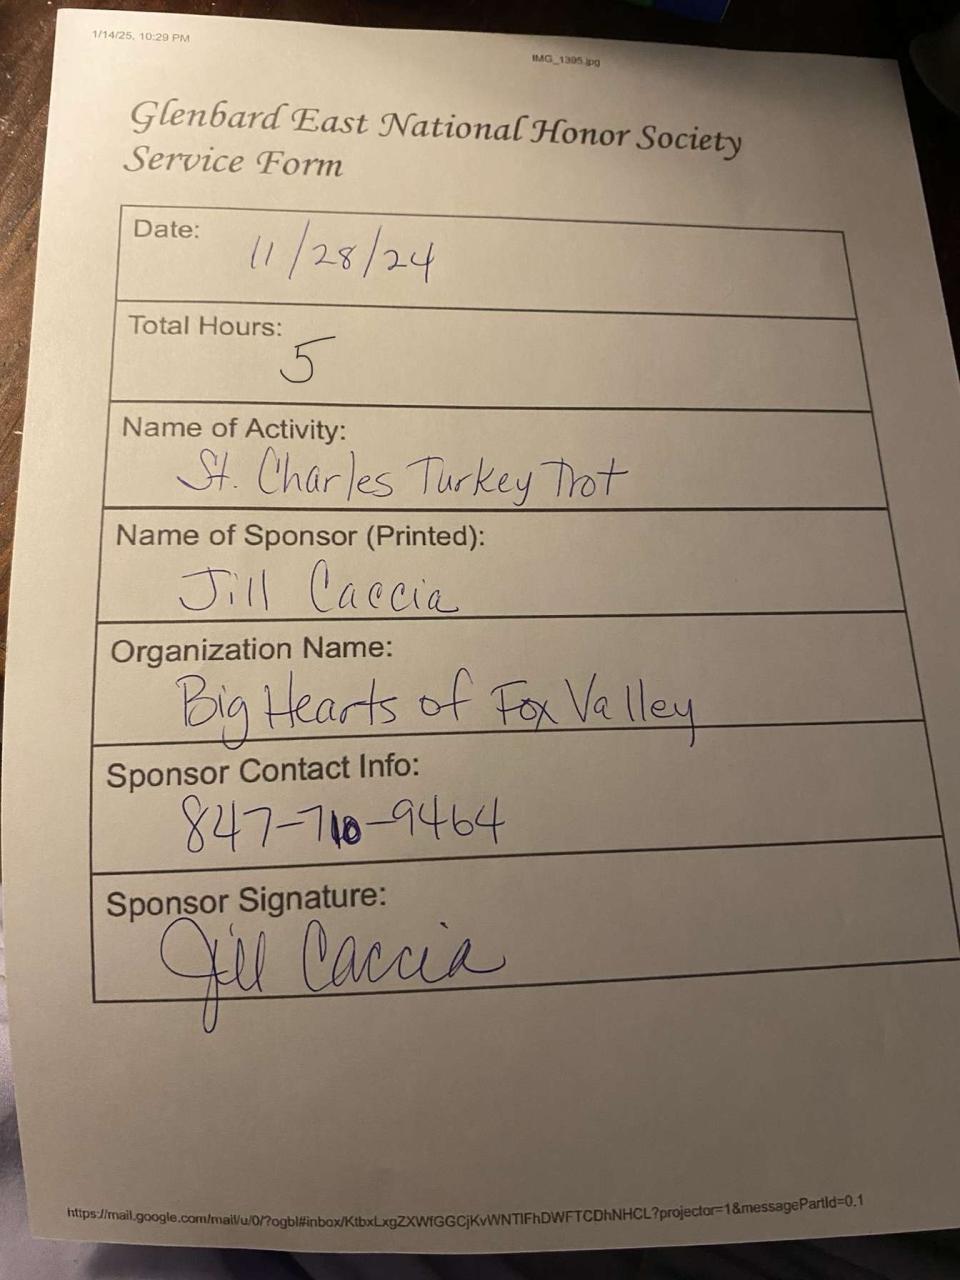 1/14/25, 10:29 PM
IMG_1395.jpg
Glenbard East National Honor Society
Service Form
Date:
11/28/24
Total Hours:
5
Name of Activity:
St. Charles Turkey Trot
Name of Sponsor (Printed):
Jill Caccia
Organization Name:
Big Hearts of Fox Valley
Sponsor Contact Info:
847-710-9464
Sponsor Signature:
Jill Caccia
https://mail.google.com/mail/u/0/?ogbl#inbox/KtbxLxgZXWfGGCjKvWNTlFhDWFTCDhNHCL?projector=1&messagePartId=0.1